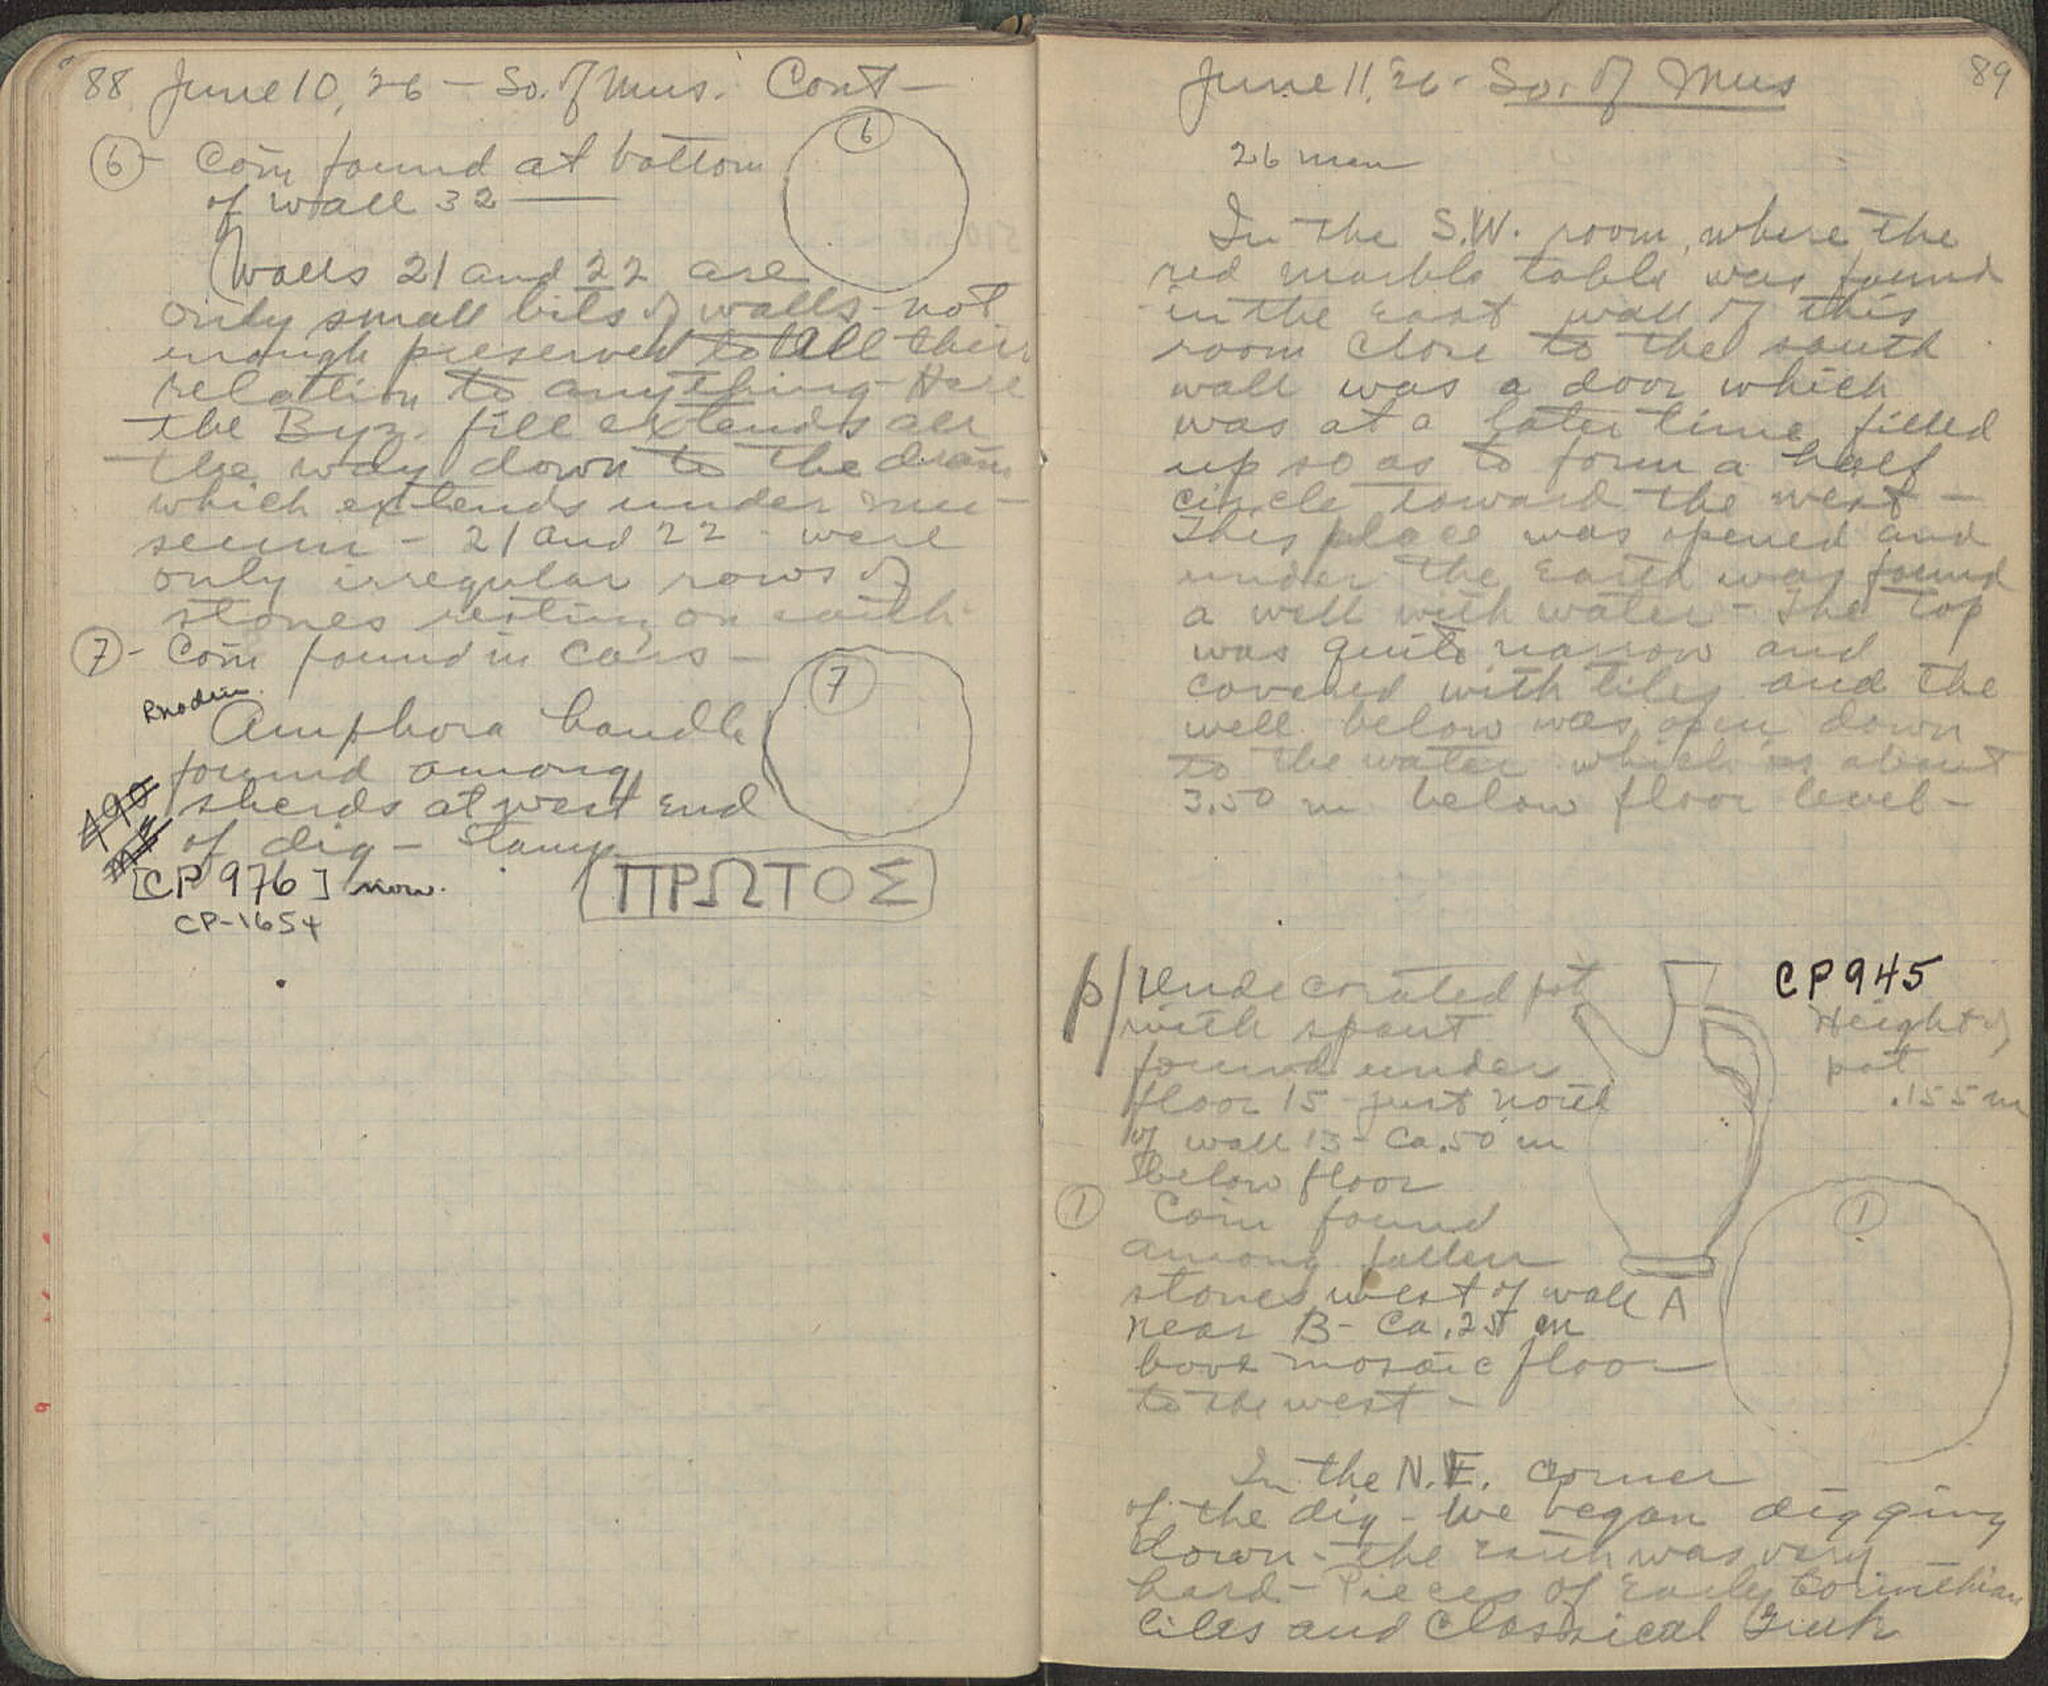 88 June 10, 26 – So. of Mus. Cont –
⑥ – Coin found at bottom
of wall 32 —
⑥
Walls 21 and 22 are
only small bits of walls – not
enough preserved to tell their
relation to anything – Here
the Byz. fill extends all
the way down to the drain
which extends under mu-
seum – 21 and 22 – were
only irregular rows of
stones resting on earth.
⑦ – Coin found in cars –
⑦
Rhodian
Amphora handle
found among
sherds at west end
490
of dig – Stamp
[CP 976] now.
CP-1654
ΠΡΩΤΟΣ
June 11, 26 – So. of Mus 89
26 men
In the S.W. room, where the
red marble table was found
in the east wall of this
room close to the south
wall was a door which
was at a later time filled
up so as to form a half
circle toward the west –
This place was opened and
under the earth was found
a well with water – The top
was quite narrow and
covered with tiles and the
well below was open down
to the water which is about
3.50 m below floor level –
p/ Undecorated pot
with spout
found under
floor 15 just north
of wall 13 – Ca .50 m
below floor
CP 945
Height of
pot
.155 m
① Coin found
among fallen
stones west of wall A
near B – Ca .25 m
bove mosaic floor
to the west –
①
In the N.E. corner
of the dig – we began digging
down – the earth was very
hard – Pieces of Early Corinthian
tiles and Classical Greek